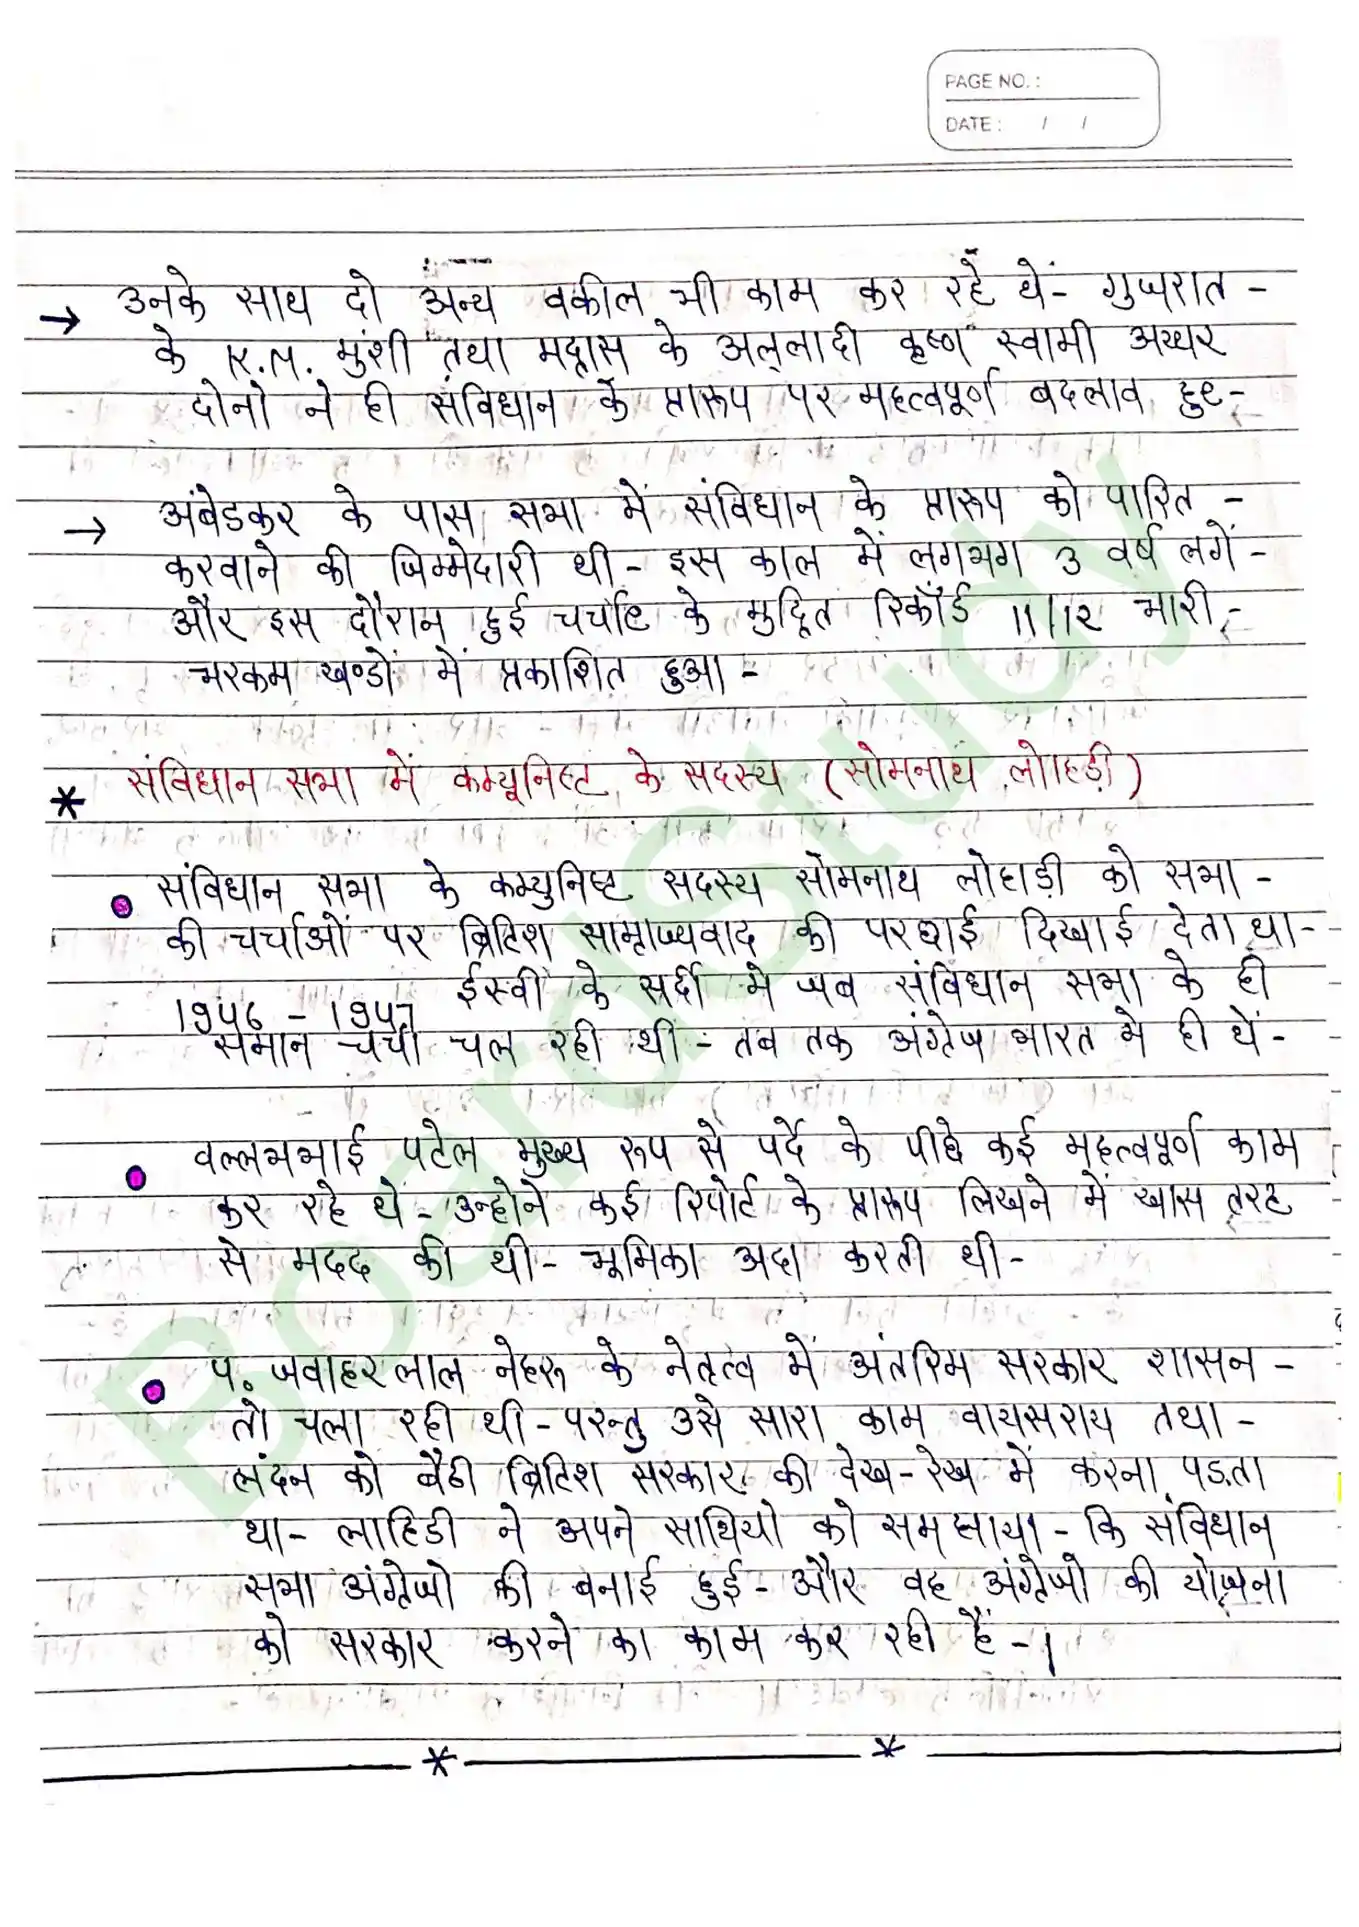 PAGE NO. :
DATE : / /
→ उनके साथ दो अन्य वकील भी काम कर रहें थें- गुजरात -
के K.M. मुंशी तथा मद्रास के अल्लादी कृष्ण स्वामी अय्यर
दोनो ने ही संविधान के प्रारूप पर महत्वपूर्ण बदलाव हुए-
→ अंबेडकर के पास सभा में संविधान के प्रारूप को पारित -
करवाने की जिम्मेदारी थी - इस काल में लगभग 3 वर्ष लगें -
और इस दौरान हुई चर्चाए के मुद्रित रिकॉर्ड 11/12 भारी -
भरकम खण्डों में प्रकाशित हुआ -
* संविधान सभा में कम्यूनिष्ट के सदस्य (सोमनाथ लोहाड़ी)
• संविधान सभा के कम्युनिष्ट सदस्य सोमनाथ लोहाड़ी को सभा -
की चर्चाओं पर ब्रिटिश साम्राज्यवाद की परछाई दिखाई देता था -
1946 - 1947 ईस्वी के सर्दी मे जब संविधान सभा के ही
समान चर्चा चल रही थी - तब तक अंग्रेज भारत मे ही थें -
• वल्लभभाई पटेल मुख्य रूप से पर्दे के पीछे कई महत्वपूर्ण काम
कर रहे थे - उन्होने कई रिपोर्ट के प्रारूप लिखने में खास तरह
से मदद की थी - भूमिका अदा करती थी -
• प. जवाहरलाल नेहरू के नेतृत्व में अंतरिम सरकार शासन -
तो चला रही थी - परन्तु उसे सारा काम वायसराय तथा -
लंदन को बैठी ब्रिटिश सरकार की देख - रेख में करना पड़ता
था - लाहिडी ने अपने साथियो को समझाया - कि संविधान
सभा अंग्रेजो की बनाई हुई - और वह अंग्रेजो की योजना
को सरकार करने का काम कर रही हैं - ।
BoardStudy